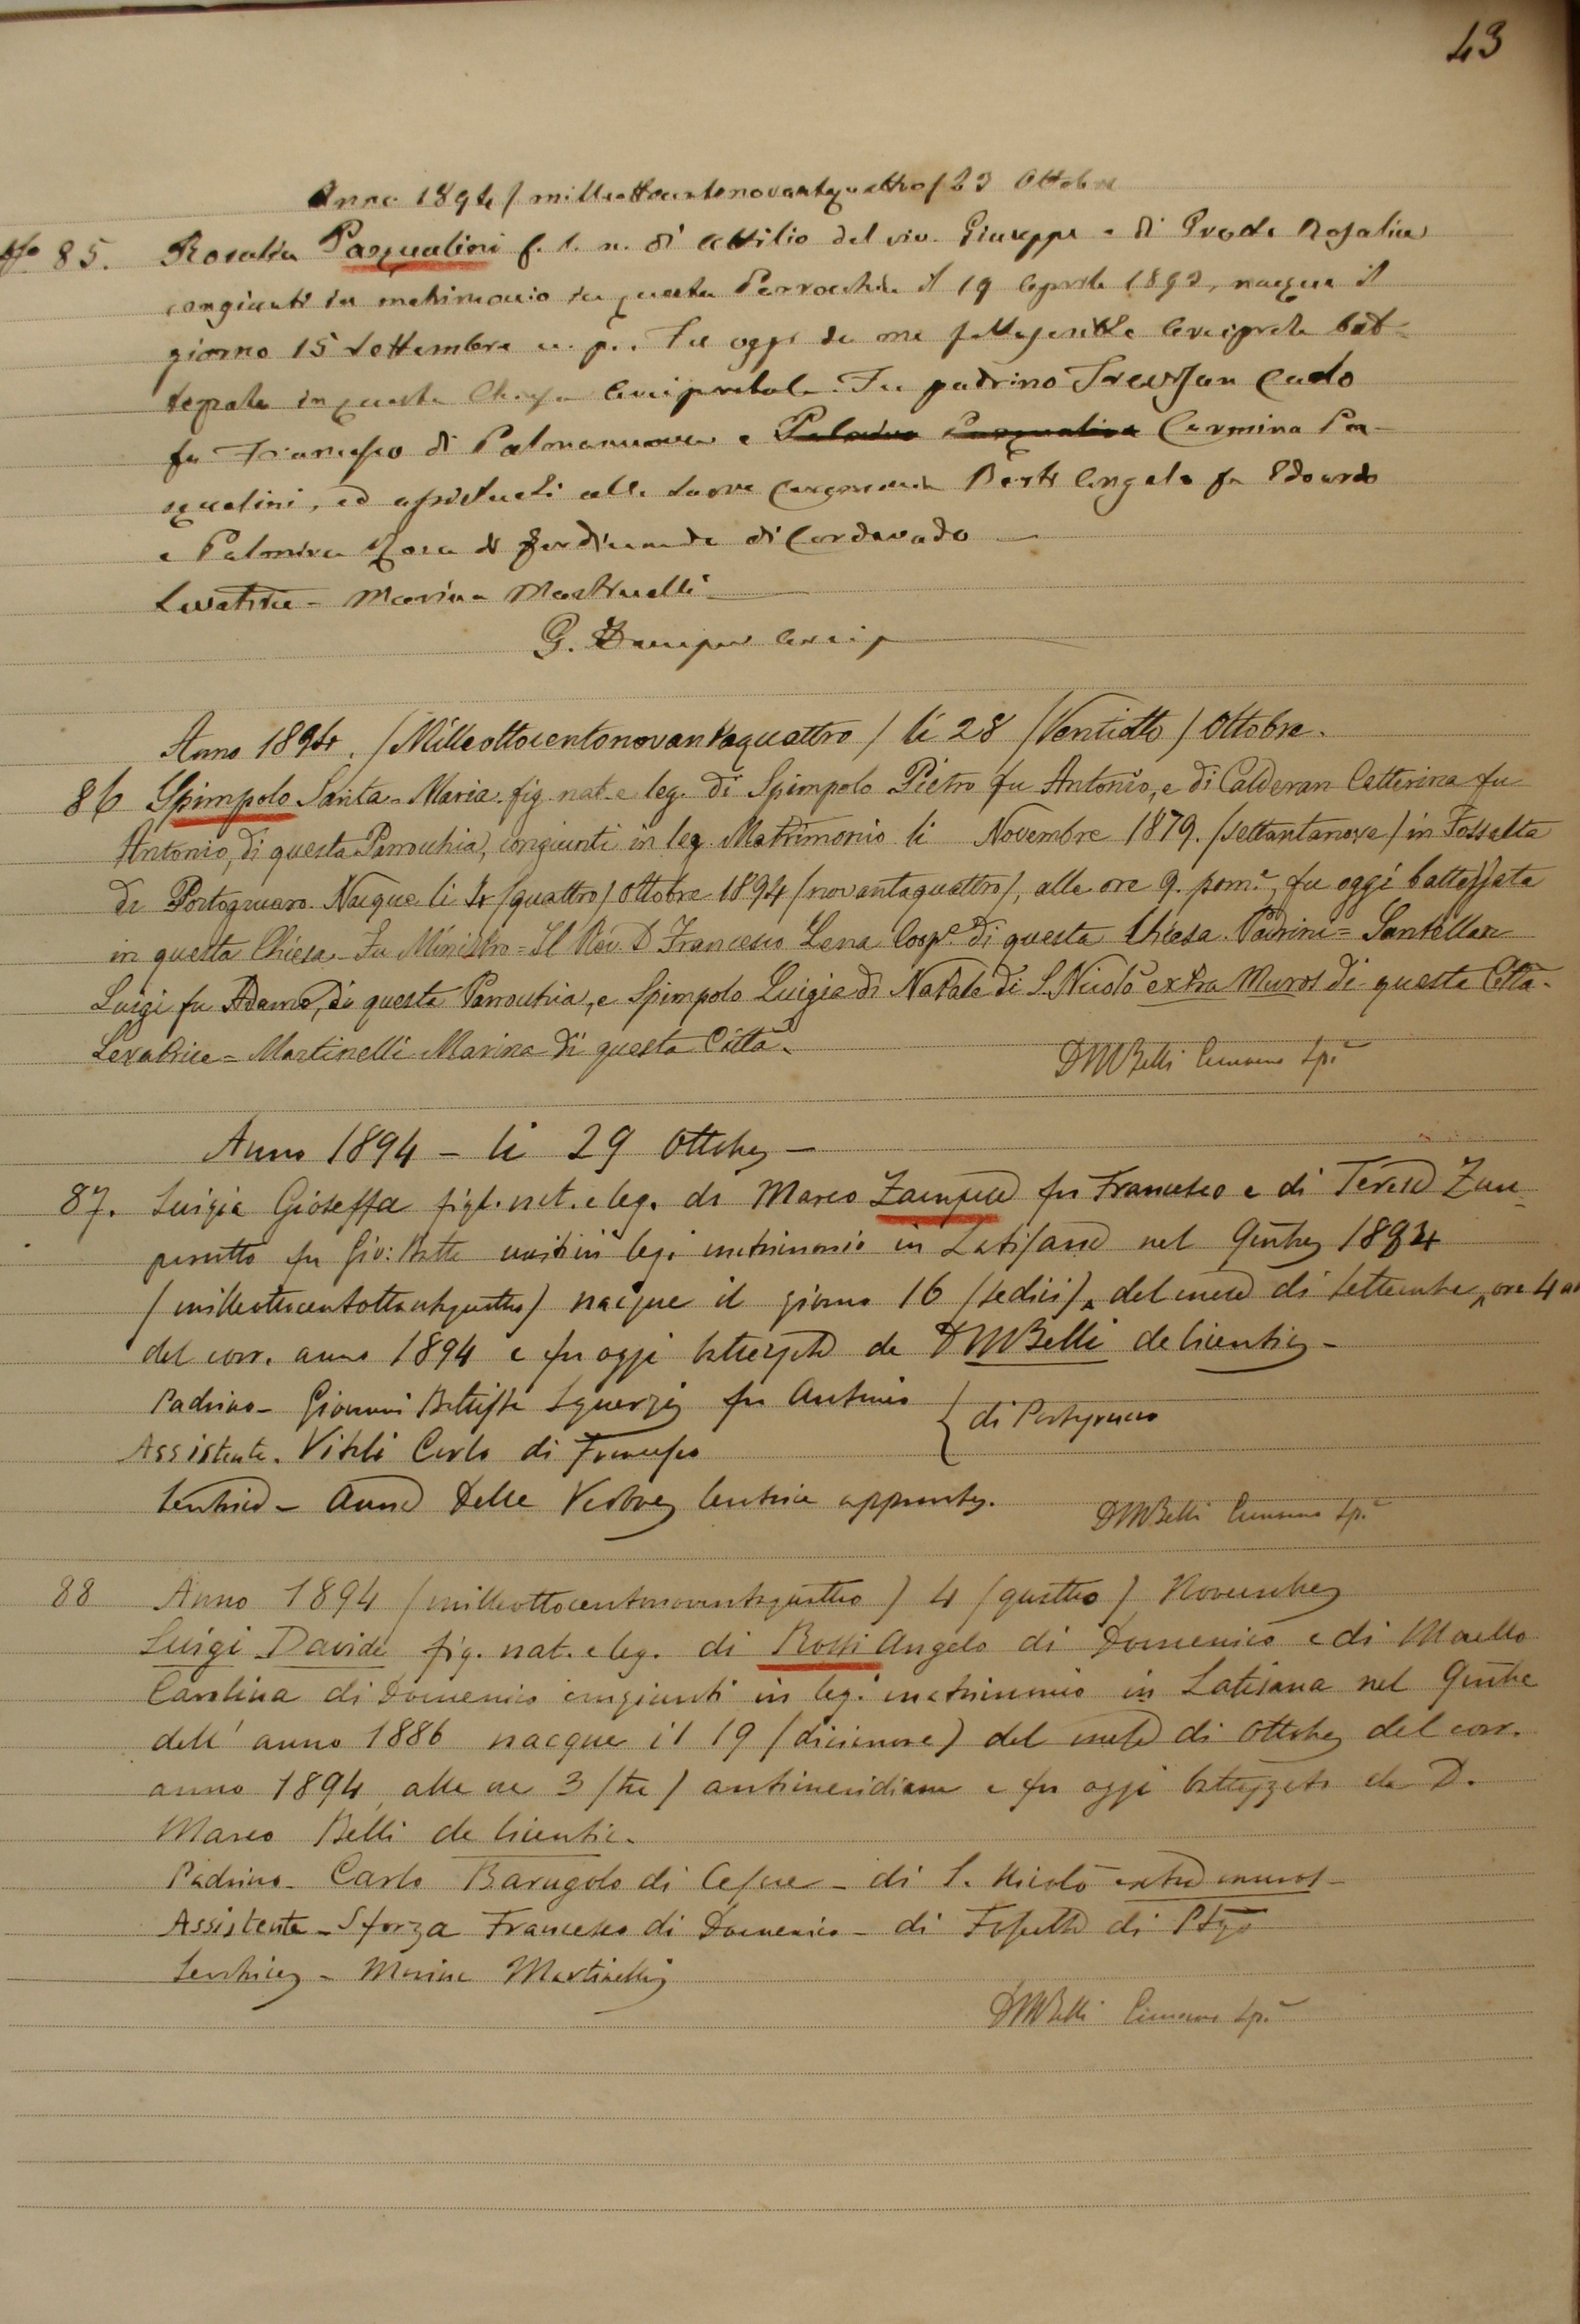 43
Anno 1894 / milleottocentonovantaquattro / 23 Ottobre
No 85. Rosalia Pasqualini f. l. n. di Attilio del viv. Giuseppe e di Prade Rosalia
congiunti in matrimonio in questa Parrocchia il 19 Aprile 1892, nacque il
giorno 15 Settembre a. p.. Fu oggi da me sottoscritto Arciprete bat-
tezzata in questa Chiesa Arcipretale. Fu padrino Trevisan Carlo
fu Francesco di Palmanuova e Palmira Pasqualini Carmina Pa-
squalini, ed assistenti alla sacra cerimonia Berti Angelo fu Edoardo
e Palmira Rosa di Ferdinando di Cordovado
Levatrice - Marina Martinelli
G. Arcip
Anno 1894. / Milleottocentonovantaquattro / li 28 / Ventiotto / Ottobre.
86 Spimpolo Santa-Maria fig. nat. e leg. di Spimpolo Pietro fu Antonio, e di Calderan Catterina fu
Antonio, di questa Parrocchia, congiunti in leg. Matrimonio li Novembre 1879. / settantanove / in Fossalta
di Portogruaro. Nacque li 4 / quattro / Ottobre 1894 / novantaquattro /, alle ore 9. pom.e, fu oggi battezzata
in questa Chiesa - Fu Ministro = Il Rev. D Francesco Lena Coop.e di questa Chiesa. Padrini = Santellan
Luigi fu Adamo, di questa Parrocchia, e Spimpolo Luigia di Natale di S. Nicolò extra Muros di questa Città.
Levatrice = Martinelli Marina di questa Città.
DMBelli Canonico Sp.e
Anno 1894 - li 29 Ottobre -
87. Luigia Gioseffa figl. nat. e leg. di Marco Zamper fu Francesco e di Teresa Zam-
parutto fu Gio: Batta uniti in leg. matrimonio in Latisana nel Genn. 1884
/ milleottocentottantaquattro / nacque il giorno 16 / sedici / del mese di Settembre ore 4
del corr. anno 1894 e fu oggi battezzata da DMBelli de licentia -
Padrino - Giovanni Battista Squerzi fu Antonio
Assistente. Vitali Carlo di Francesco
} di Portogruaro
Levatrice - Anna Delle Vedove levatrice approvata.
DMBelli Canonico Sp.e
88 Anno 1894 / milleottocentonovantaquattro / 4 / quattro / Novembre
Luigi Davide fig. nat. e leg. di Rossi Angelo di Domenico e di Morello
Carolina di Domenico congiunti in leg. matrimonio in Latisana nel Genn.
dell' anno 1886 nacque il 19 / dicianove / del mese di Ottobre del corr.
anno 1894 alle ore 3 / tre / antimeridiane e fu oggi battezzato da D.
Marco Belli de licentia.
Padrino - Carlo Barugolo di Cesare - di S. Nicolò extra muros -
Assistente - Sforza Francesco di Domenico - di Fossalta di Ptgo
Levatrice - Marina Martinelli
DMBelli Canonico Sp.e